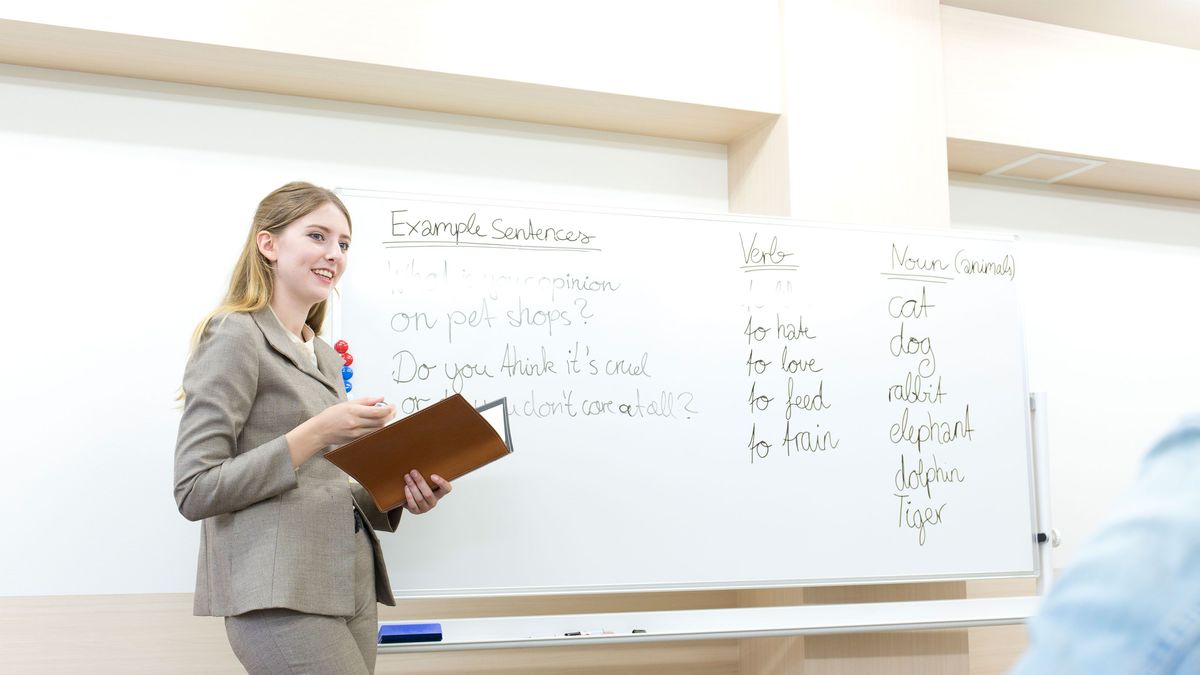 Example Sentences
What is your opinion
on pet shops?
Do you think it's cruel
or you don't care at all?
Verb
to hate
to love
to feed
to train
Noun (animals)
cat
dog
rabbit
elephant
dolphin
Tiger